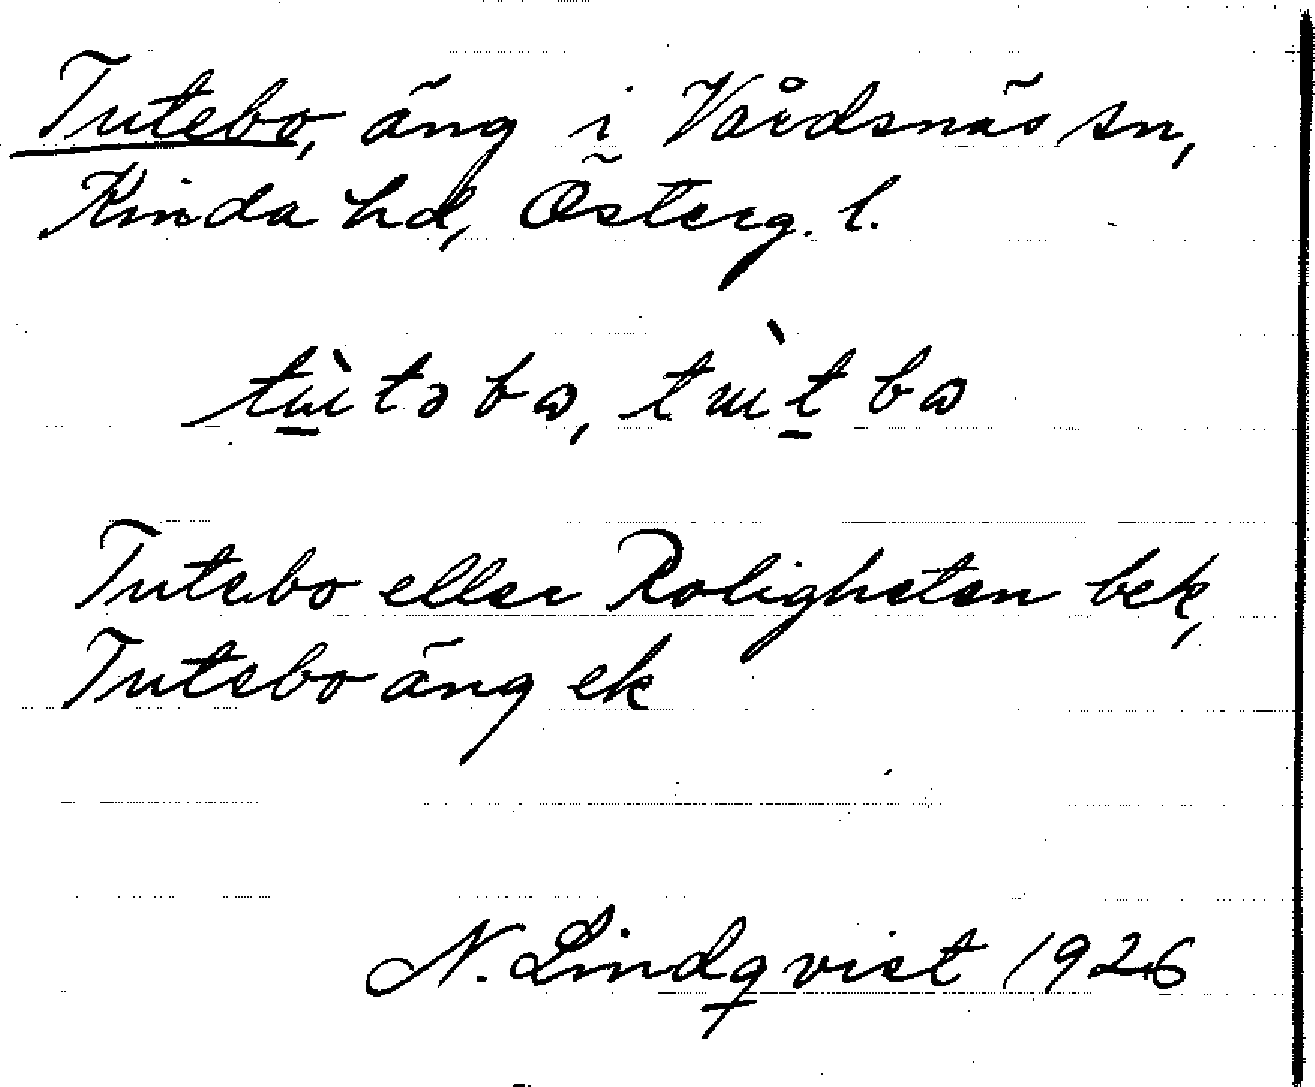 Tutebo, äng i Vårdsnäs sn,
Kinda hd, Österg. l.
Tutebo eller Roligheten bek,
Tutebo äng ek
N. Lindqvist 1926